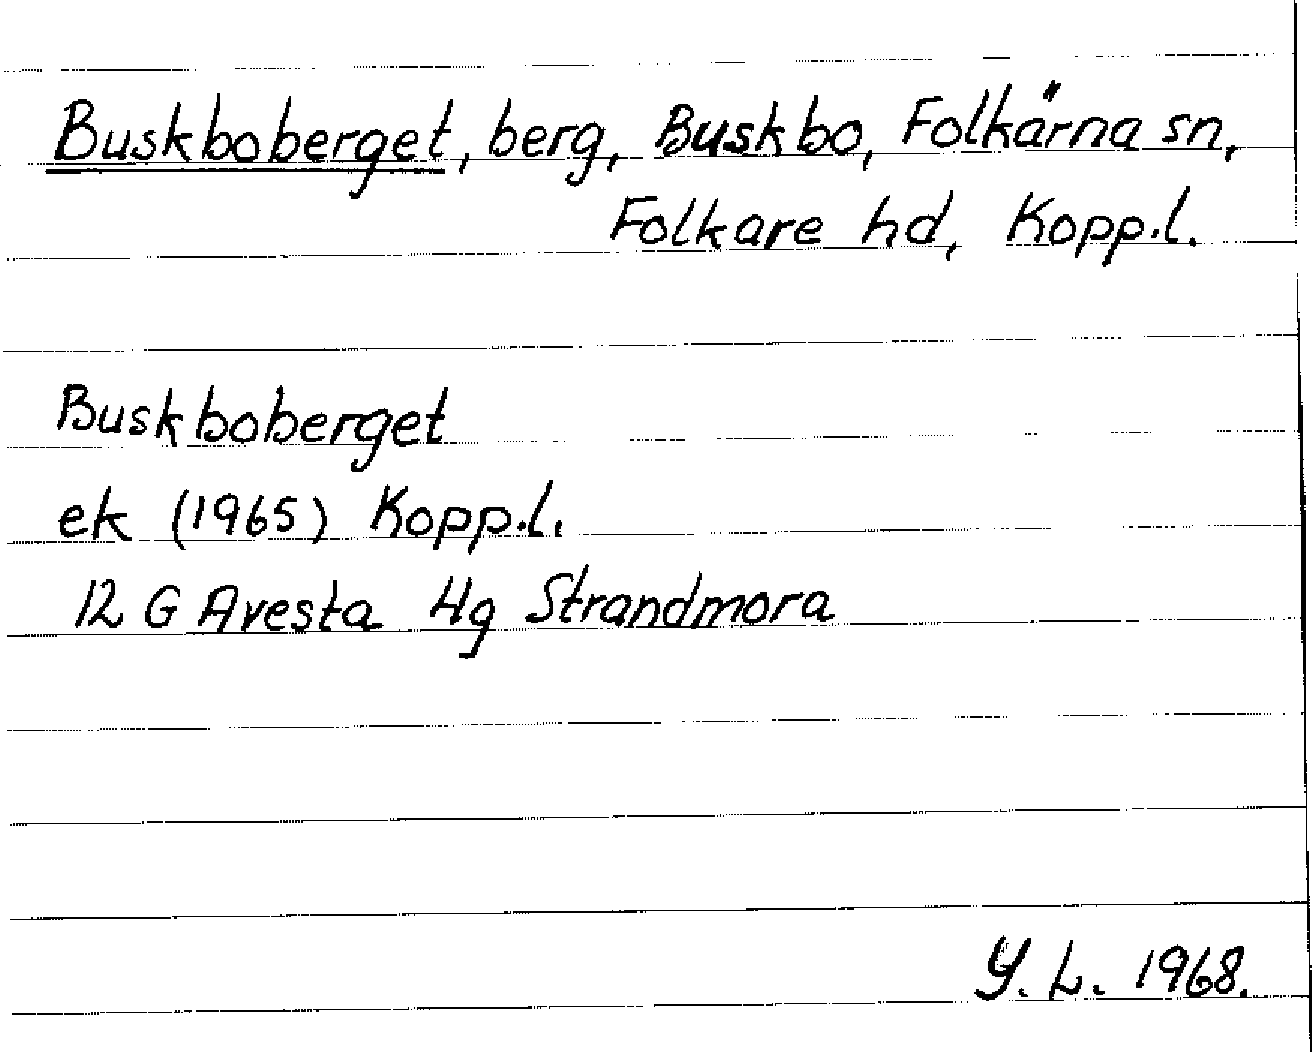 Buskboberget, berg, Buskbo, Folkärna sn,
Folkare hd, Kopp.l.
Buskboberget
ek (1965) Kopp.l.
12 G Avesta 4g Strandmora
Y. L. 1968.